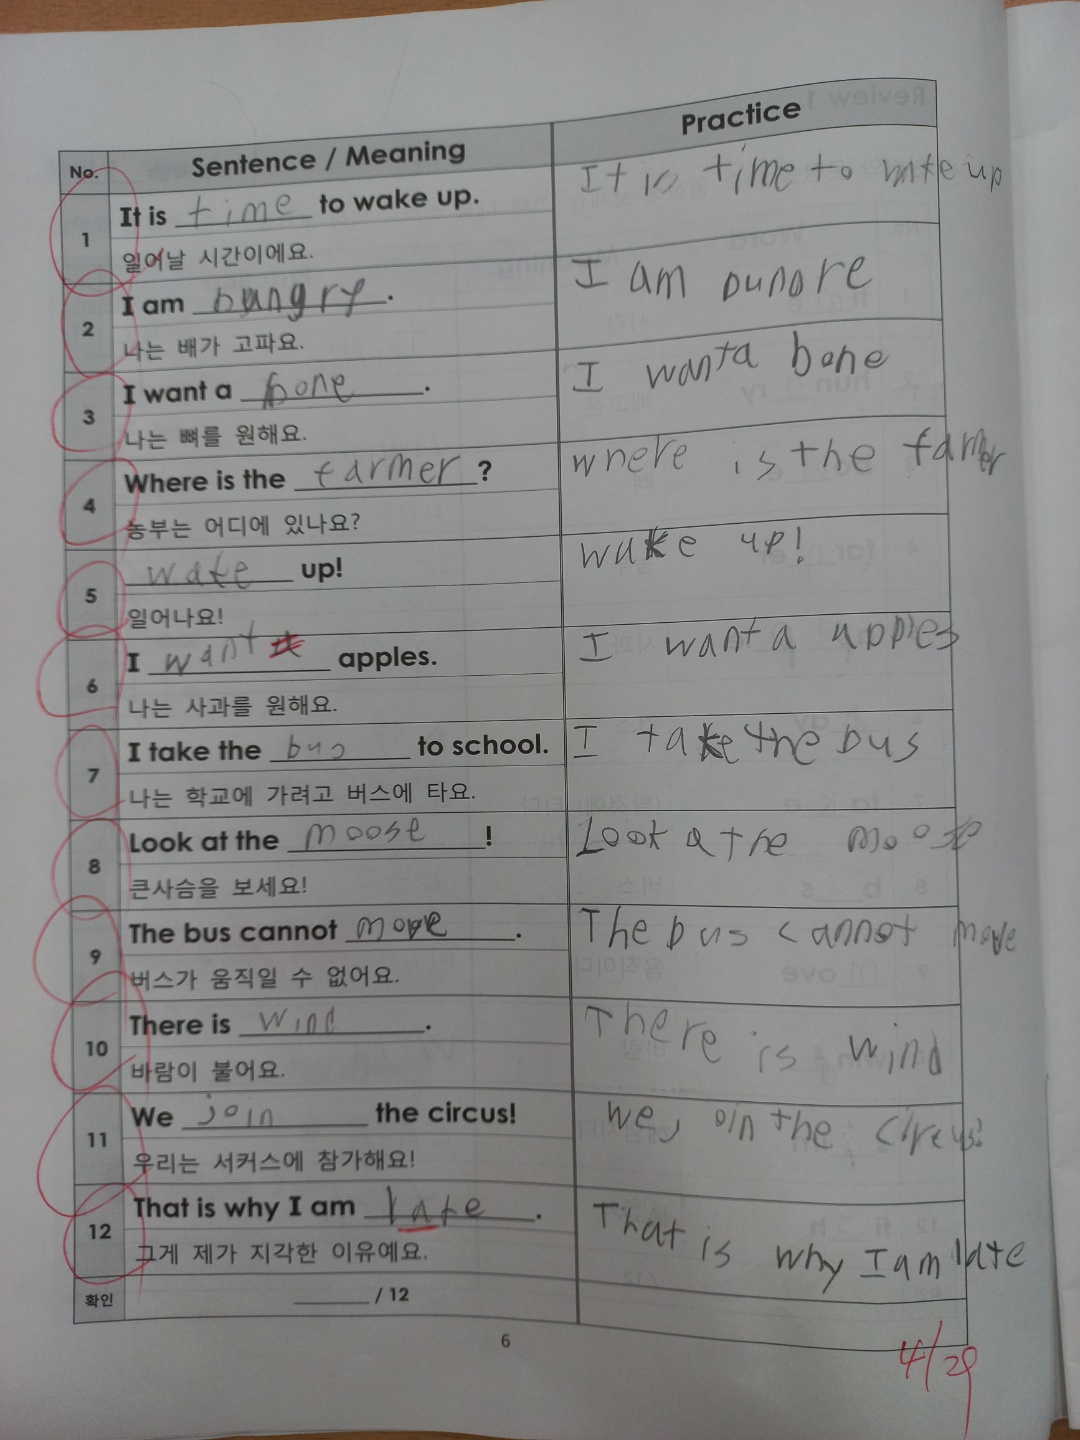 No. Sentence / Meaning Practice
1 It is time to wake up. It is time to wake up
일어날 시간이에요.
2 I am hungry. I am
나는 배가 고파요.
3 I want a bone. I want a bone
나는 뼈를 원해요.
4 Where is the farmer? where is the farmer
농부는 어디에 있나요?
5 wake up! wake up!
일어나요!
6 I want apples. I want a apples
나는 사과를 원해요.
7 I take the bus to school. I take the bus
나는 학교에 가려고 버스에 타요.
8 Look at the moose! Look a the moose
큰사슴을 보세요!
9 The bus cannot move. The bus cannot move
버스가 움직일 수 없어요.
10 There is wind. There is wind
바람이 불어요.
11 We join the circus! We join the circus!
우리는 서커스에 참가해요!
12 That is why I am late. That is why I am late
그게 제가 지각한 이유예요.
확인 / 12
6
4/29